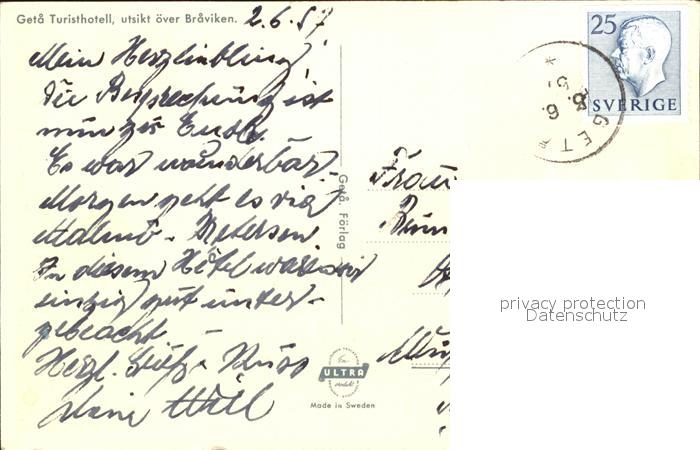 Getå Turisthotell, utsikt över Bråviken.
2.6.57
25
SVERIGE
GETÅ
6.
Mein Herzliebling!
Die Besprechung ist
nun zu Ende.
Es war wunderbar,
Morgen geht es via
Malmö -
In diesem Hotel waren wir
einzig gut unter-
gebracht. -
Herzl. Grüße
Frau
Getå. Förlag
En
ULTRA
produkt
Made in Sweden
privacy protection
Datenschutz